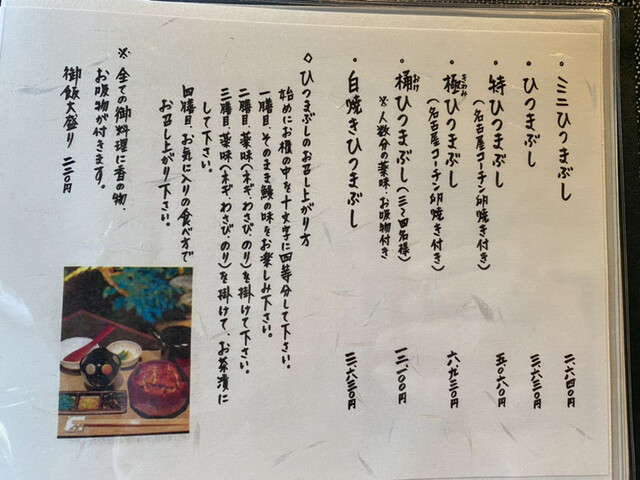 ・ミニひつまぶし 二、六四〇円
・ひつまぶし 三、六三〇円
・特ひつまぶし 五、〇六〇円
（名古屋コーチン卵焼き付き）
・極ひつまぶし 六、九三〇円
きわみ
（名古屋コーチン卵焼き付き）
・桶ひつまぶし（三〜四名様） 一二、一〇〇円
おけ
※人数分の薬味・お吸物付き
・白焼きひつまぶし 三、六三〇円
◇ひつまぶしのお召し上がり方
始めにお櫃の中を十文字に四等分して下さい。
一膳目、そのまま鰻の味をお楽しみ下さい。
二膳目、薬味（ネギ、わさび、のり）を掛けて下さい。
三膳目、薬味（ネギ、わさび、のり）を掛けて、お茶漬に
して下さい。
四膳目、お気に入りの食べ方で
お召し上がり下さい。
※全ての御料理に香の物、
お吸物が付きます。
御飯大盛り 二二〇円